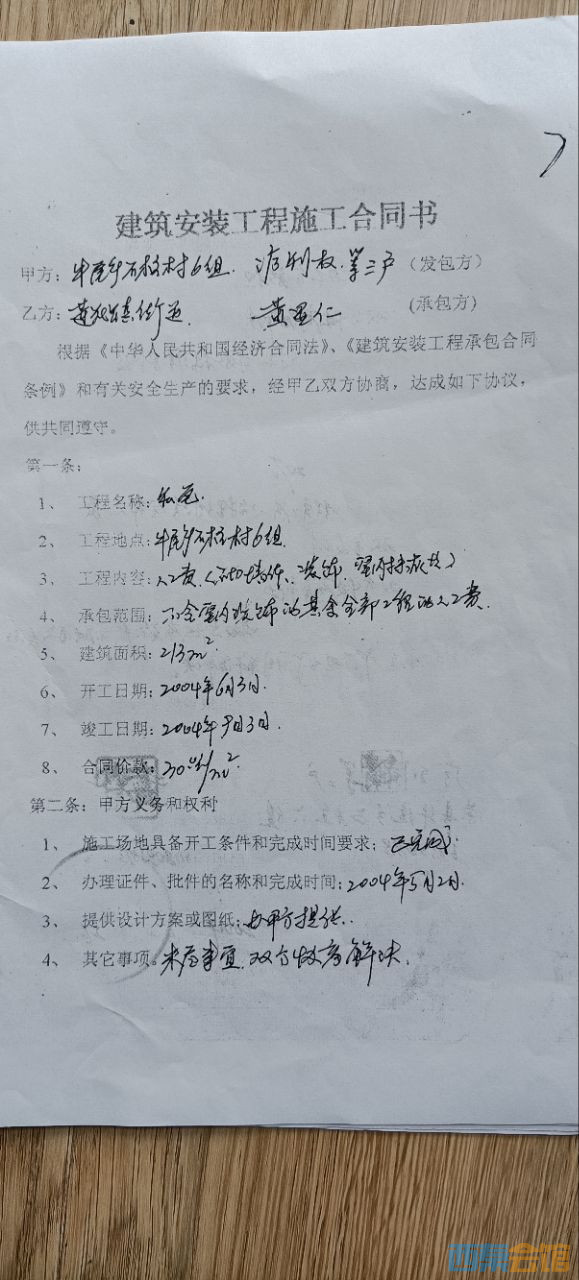 建筑安装工程施工合同书
甲方：牛尾乡石柱村6组. 权. 第三户（发包方）
乙方：镇街道. 黄显仁 (承包方)
根据《中华人民共和国经济合同法》、《建筑安装工程承包合同
条例》和有关安全生产的要求，经甲乙双方协商，达成如下协议，
供共同遵守。
第一条：
1、 工程名称：私宅.
2、 工程地点：牛尾乡石柱村6组.
3、 工程内容：人工费
4、 承包范围：不含室内装饰的其余全部工程的人工费.
5、 建筑面积：213m².
6、 开工日期：2004年6月3日.
7、 竣工日期：2004年9月3日.
8、 合同价款：/m².
第二条：甲方义务和权利
1、 施工场地具备开工条件和完成时间要求；已完成.
2、 办理证件、批件的名称和完成时间：2004年5月2日.
3、 提供设计方案或图纸：由甲方提供.
4、 其它事项。未尽事宜.双方协商解决.
西祠会馆